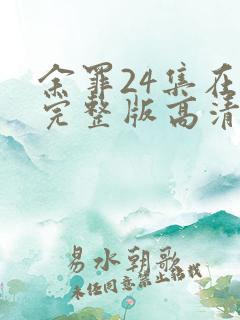 余罪24集在
完整版高清
易水朝歌
未经同意禁止搬我